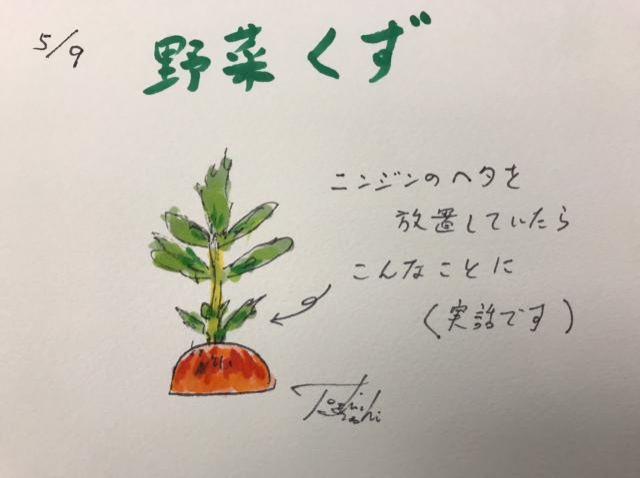 5/9
野菜くず
ニンジンのヘタを
放置していたら
こんなことに
(実話です)